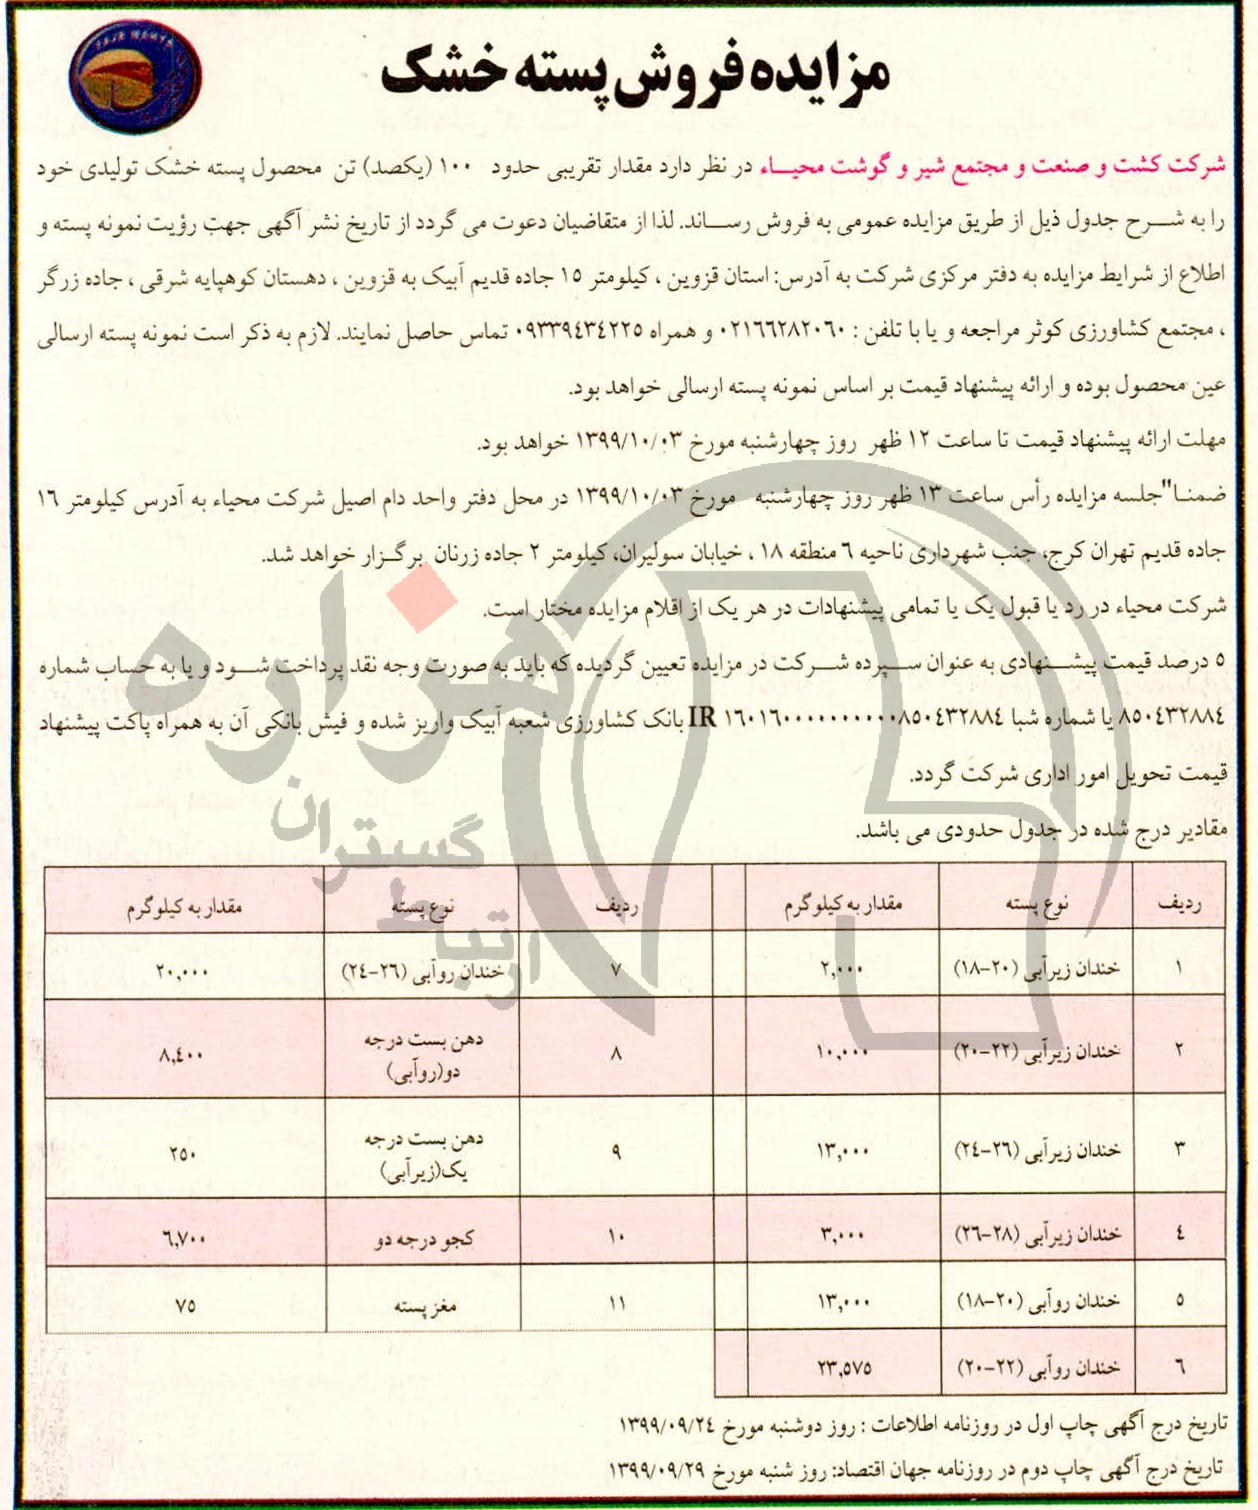 FAJR MAHYA
مزایده فروش پسته خشک
شرکت کشت و صنعت و مجتمع شیر و گوشت محیـــاء در نظر دارد مقدار تقریبی حدود ۱۰۰ (یکصد) تن محصول پسته خشک تولیدی خود
را به شـــرح جدول ذیل از طریق مزایده عمومی به فروش رســـاند. لذا از متقاضیان دعوت می گردد از تاریخ نشر آگهی جهت رؤیت نمونه پسته و
اطلاع از شرایط مزایده به دفتر مرکزی شرکت به آدرس: استان قزوین ، کیلومتر ۱۵ جاده قدیم آبیک به قزوین ، دهستان کوهپایه شرقی ، جاده زرگر
، مجتمع کشاورزی کوثر مراجعه و یا با تلفن : ۰۲۱۶۶۲۸۲۰۶۰ و همراه ۰۹۳۳۹٤۳٤۲۲۵ تماس حاصل نمایند. لازم به ذکر است نمونه پسته ارسالی
عین محصول بوده و ارائه پیشنهاد قیمت بر اساس نمونه پسته ارسالی خواهد بود.
مهلت ارائه پیشنهاد قیمت تا ساعت ۱۲ ظهر روز چهارشنبه مورخ ۱۳۹۹/۱۰/۰۳ خواهد بود.
ضمنـا"جلسه مزایده رأس ساعت ۱۳ ظهر روز چهارشنبه مورخ ۱۳۹۹/۱۰/۰۳ در محل دفتر واحد دام اصیل شرکت محیاء به آدرس کیلومتر ۱۶
جاده قدیم تهران کرج، جنب شهرداری ناحیه ۶ منطقه ۱۸ ، خیابان سولیران، کیلومتر ۲ جاده زرنان برگـزار خواهد شد.
شرکت محیاء در رد یا قبول یک یا تمامی پیشنهادات در هر یک از اقلام مزایده مختار است.
۵ درصد قیمت پیشـــنهادی به عنوان ســـپرده شـــرکت در مزایده تعیین گردیده که باید به صورت وجه نقد پرداخت شـــود و یا به حساب شماره
۸۵۰٤۳۲۸۸٤ یا شماره شبا IR ۱۶۰۱۶۰۰۰۰۰۰۰۰۰۰۰۸۵۰٤۳۲۸۸٤ بانک کشاورزی شعبه آبیک واریز شده و فیش بانکی آن به همراه پاکت پیشنهاد
قیمت تحویل امور اداری شرکت گردد.
مقادیر درج شده در جدول حدودی می باشد.
ردیف نوع پسته مقدار به کیلوگرم ردیف نوع پسته مقدار به کیلوگرم
۱ خندان زیرآبی (۲۰-۱۸) ۲,۰۰۰ ۷ خندان روآبی (۲۶-۲٤) ۲۰,۰۰۰
۲ خندان زیرآبی (۲۲-۲۰) ۱۰,۰۰۰ ۸ دهن بست درجه
دو(روآبی) ۸,٤۰۰
۳ خندان زیرآبی (۲۶-۲٤) ۱۳,۰۰۰ ۹ دهن بست درجه
یک(زیرآبی) ۲۵۰
٤ خندان زیرآبی (۲۸-۲۶) ۳,۰۰۰ ۱۰ کجو درجه دو ۶,۷۰۰
۵ خندان روآبی (۲۰-۱۸) ۱۳,۰۰۰ ۱۱ مغز پسته ۷۵
۶ خندان روآبی (۲۲-۲۰) ۲۳,۵۷۵
تاریخ درج آگهی چاپ اول در روزنامه اطلاعات : روز دوشنبه مورخ ۱۳۹۹/۰۹/۲٤
تاریخ درج آگهی چاپ دوم در روزنامه جهان اقتصاد: روز شنبه مورخ ۱۳۹۹/۰۹/۲۹
هزاره
ارتباط
گسترن